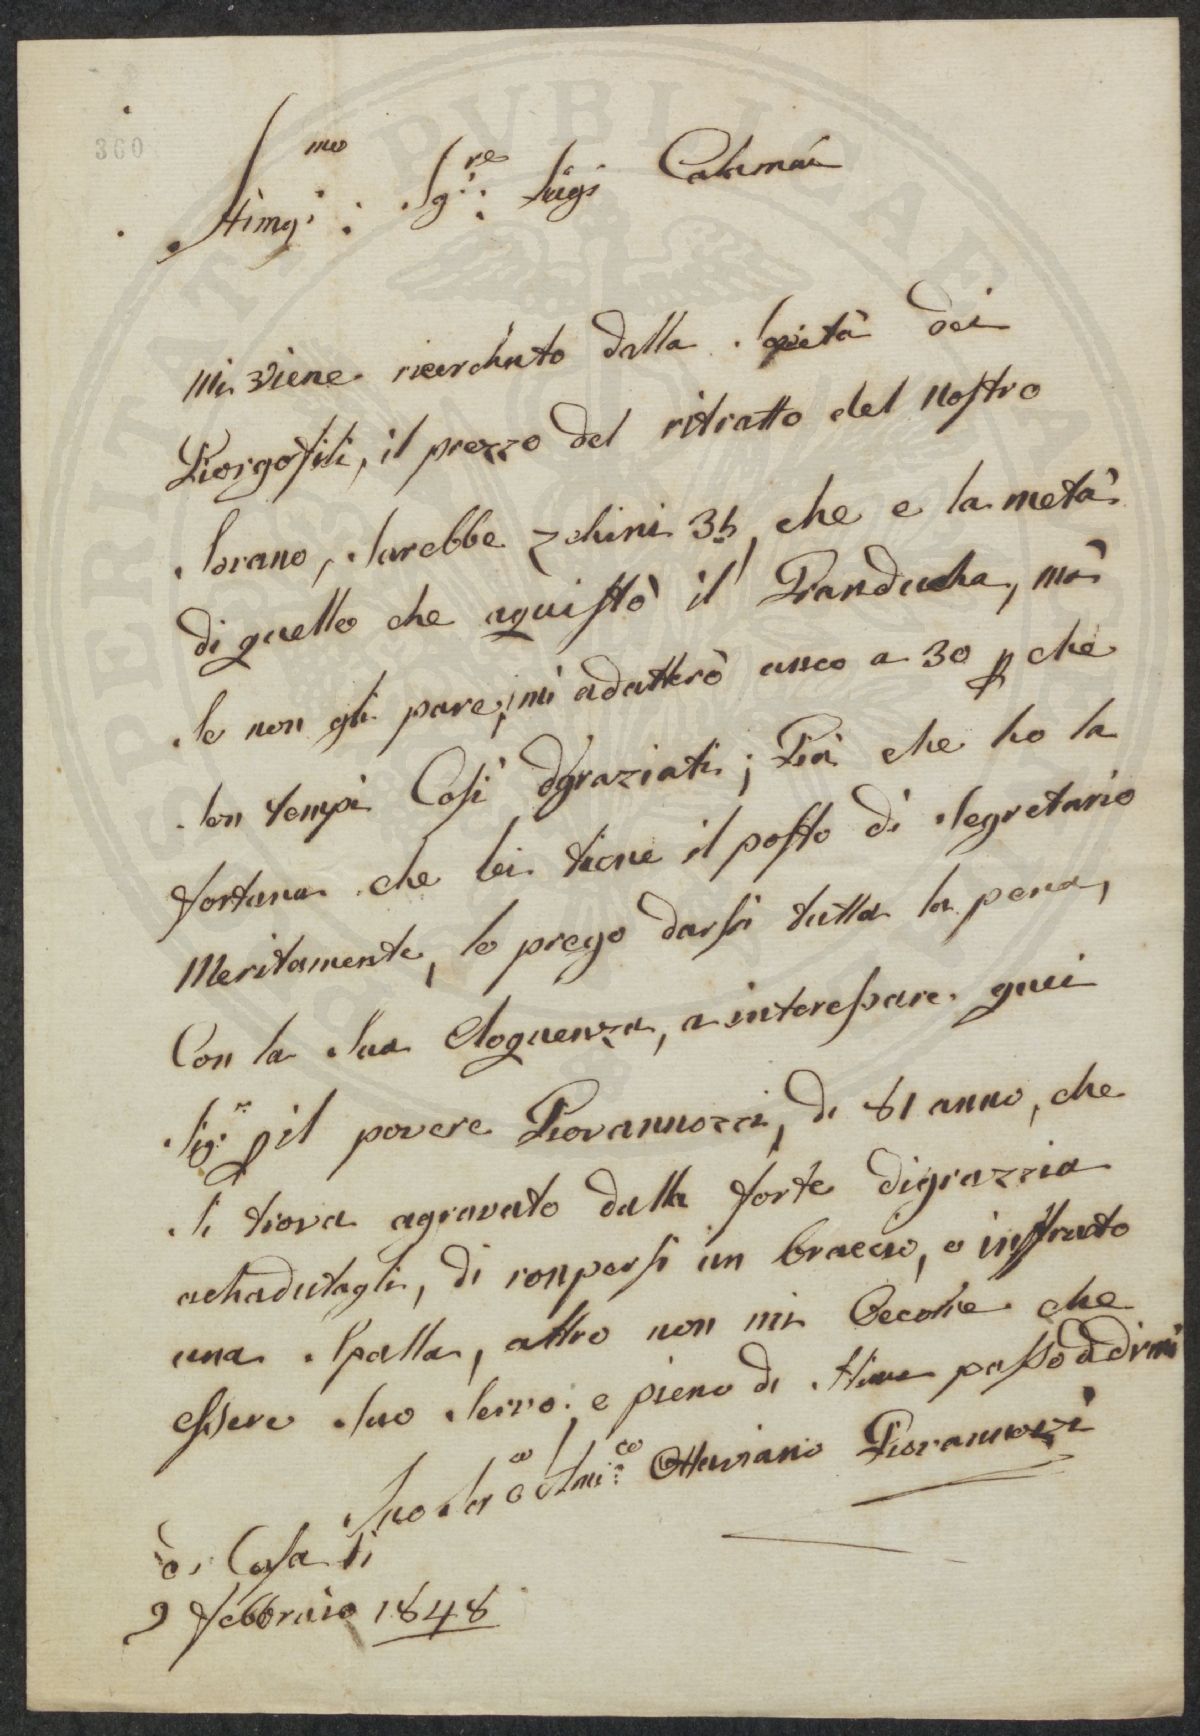 360
Stimg.mo Sg.re Luigi Calamai
mi viene ricerchato dalla Società dei
Giorgofili, il prezzo del ritratto del nostro
Sovrano, sarebbe zchini 35, che e la metà
di quello che aquistò il Granducha, mà
se non gli pare, mi adatterò anco a 30 p che
son tempi Così dgraziati; Più che ho la
fortuna che lei tiene il posto di Segretario
Meritamente, lo prego darsi tutta la pena,
Con la Sua Eloquenza, a interessare quei
Sig.ri p il povere Giovannozzi, di 81 anno, che
Si trova agravato dalla forte digrazzia
achadutagli, di ronpersi un braccio, e
una Spalla, altro non mi Occorre che
essere Suo Servo; e pieno di Stima passo a dirmi
Suo Ser Ami.co Ottaviano Giovannozzi
Di Casa li
9 Febbraio 1848